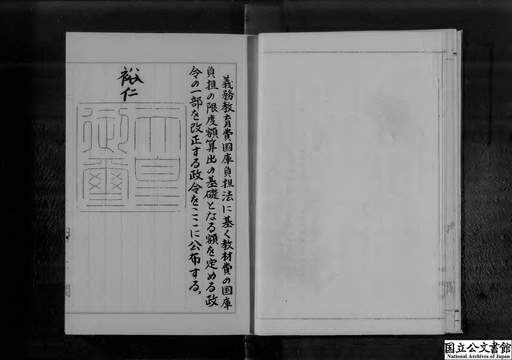 義務教育費国庫負担法に基く教材費の国庫
負担の限度額算出の基礎となる額を定める政
令の一部を改正する政令をここに公布する。
裕仁
天皇
御璽
国立公文書館
National Archives of Japan